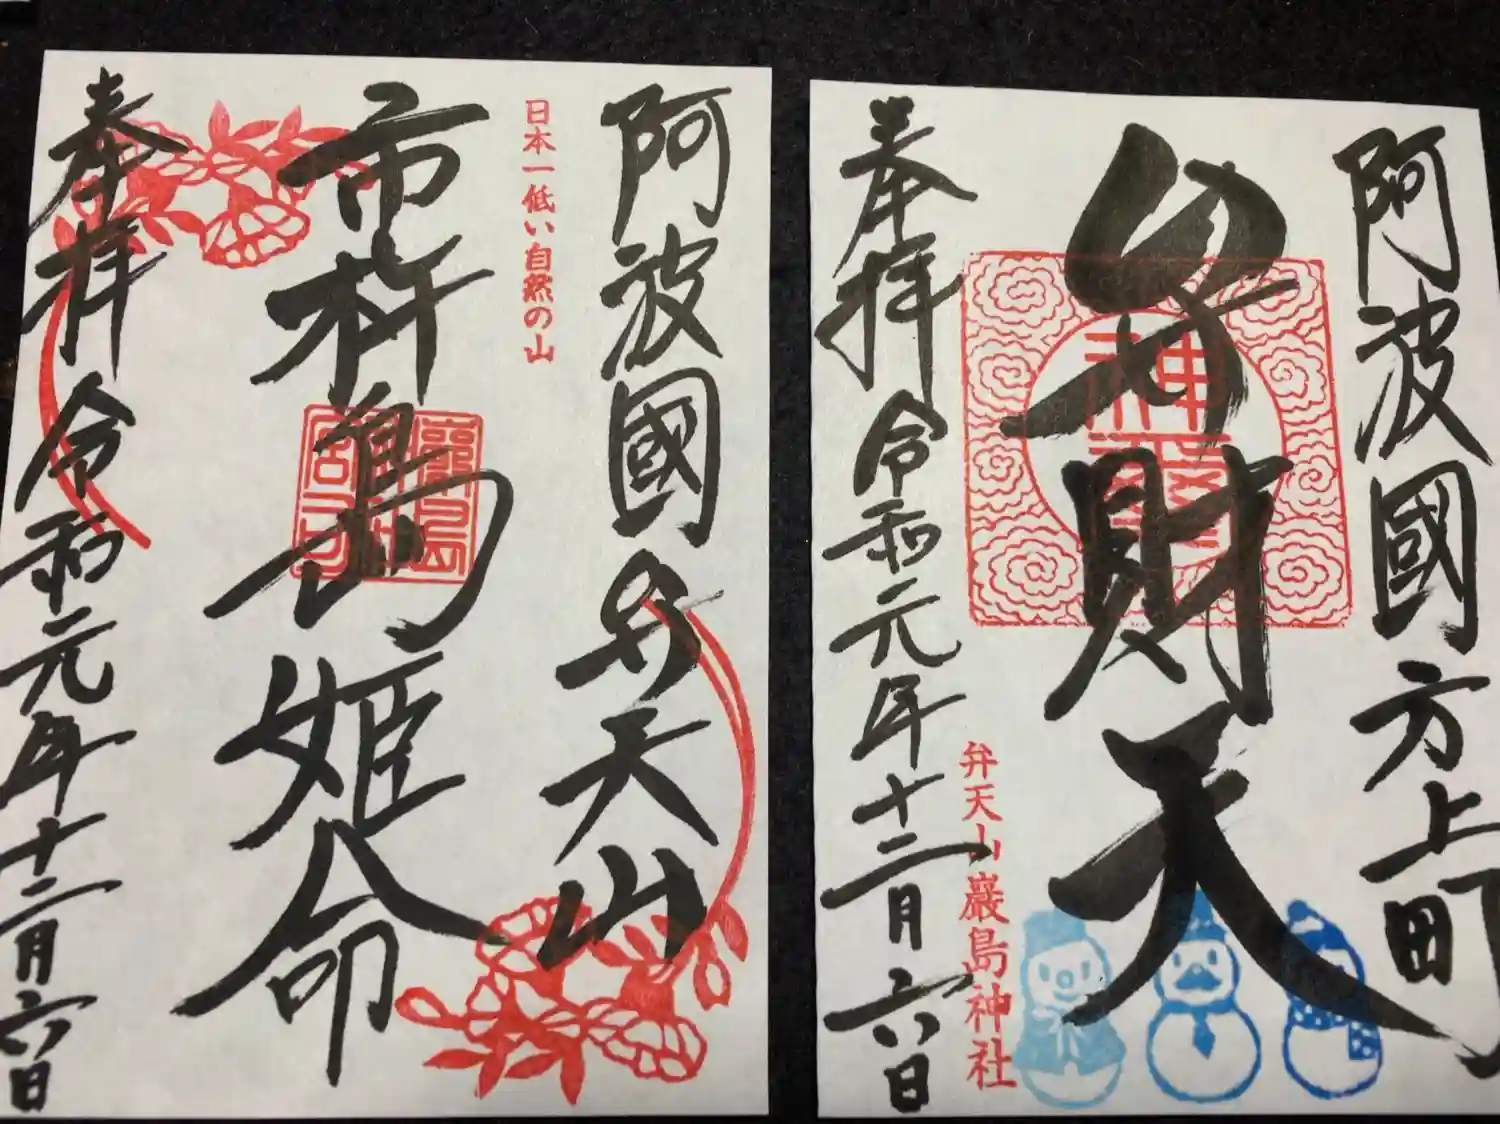 阿波國方上町
弁財天
奉拝 令和元年十二月六日
弁天山巖島神社
阿波國弁天山
日本一低い自然の山
市杵島姫命
奉拝 令和元年十二月六日